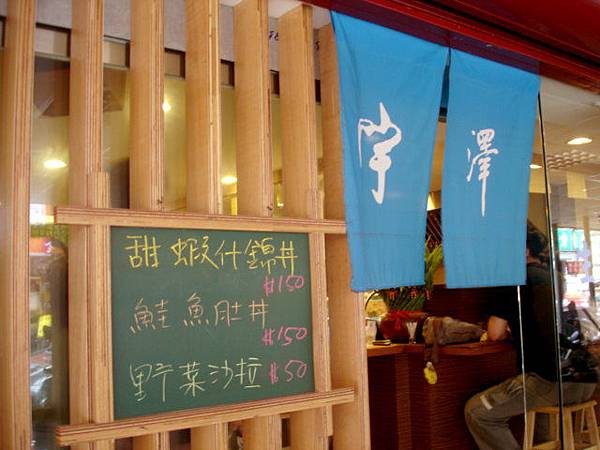 甜蝦什錦丼
$150
鮭魚肚丼
$150
野菜沙拉 $50
澤